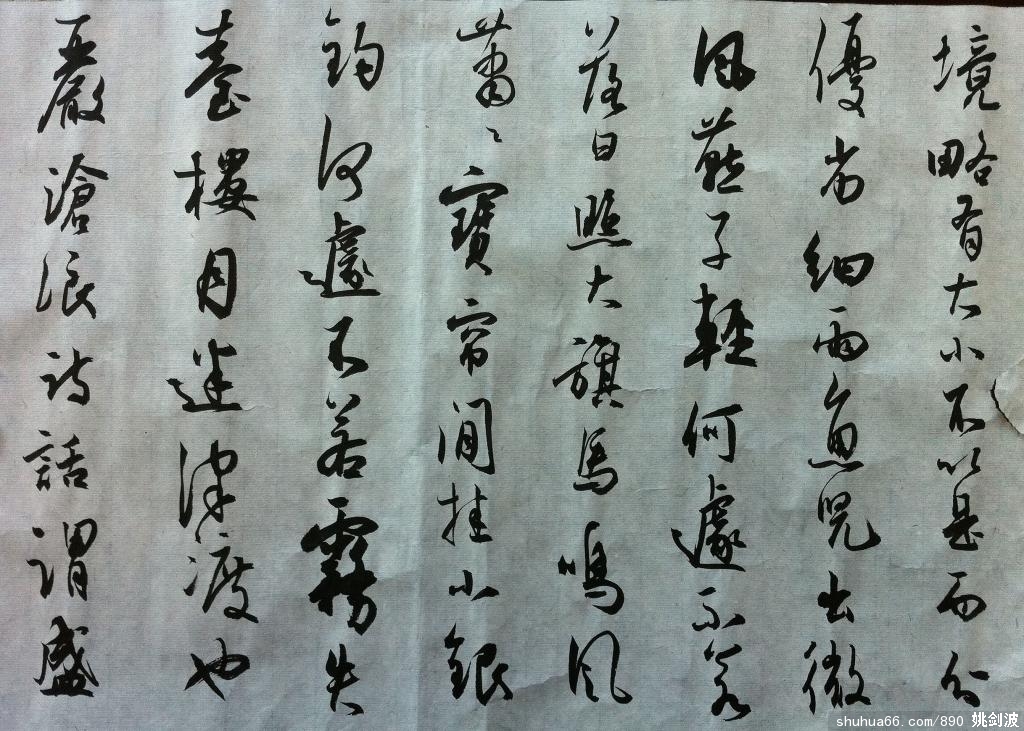 境略有大小不以是而分
優劣細雨魚兒出微
風燕子輕何遽不若
落日照大旗馬鳴風
蕭〻寶帘閒挂小銀
鈎何遽不若霧失
臺樓月迷津渡也
嚴滄浪詩話謂盛
shuhua66.com/890 姚剑波